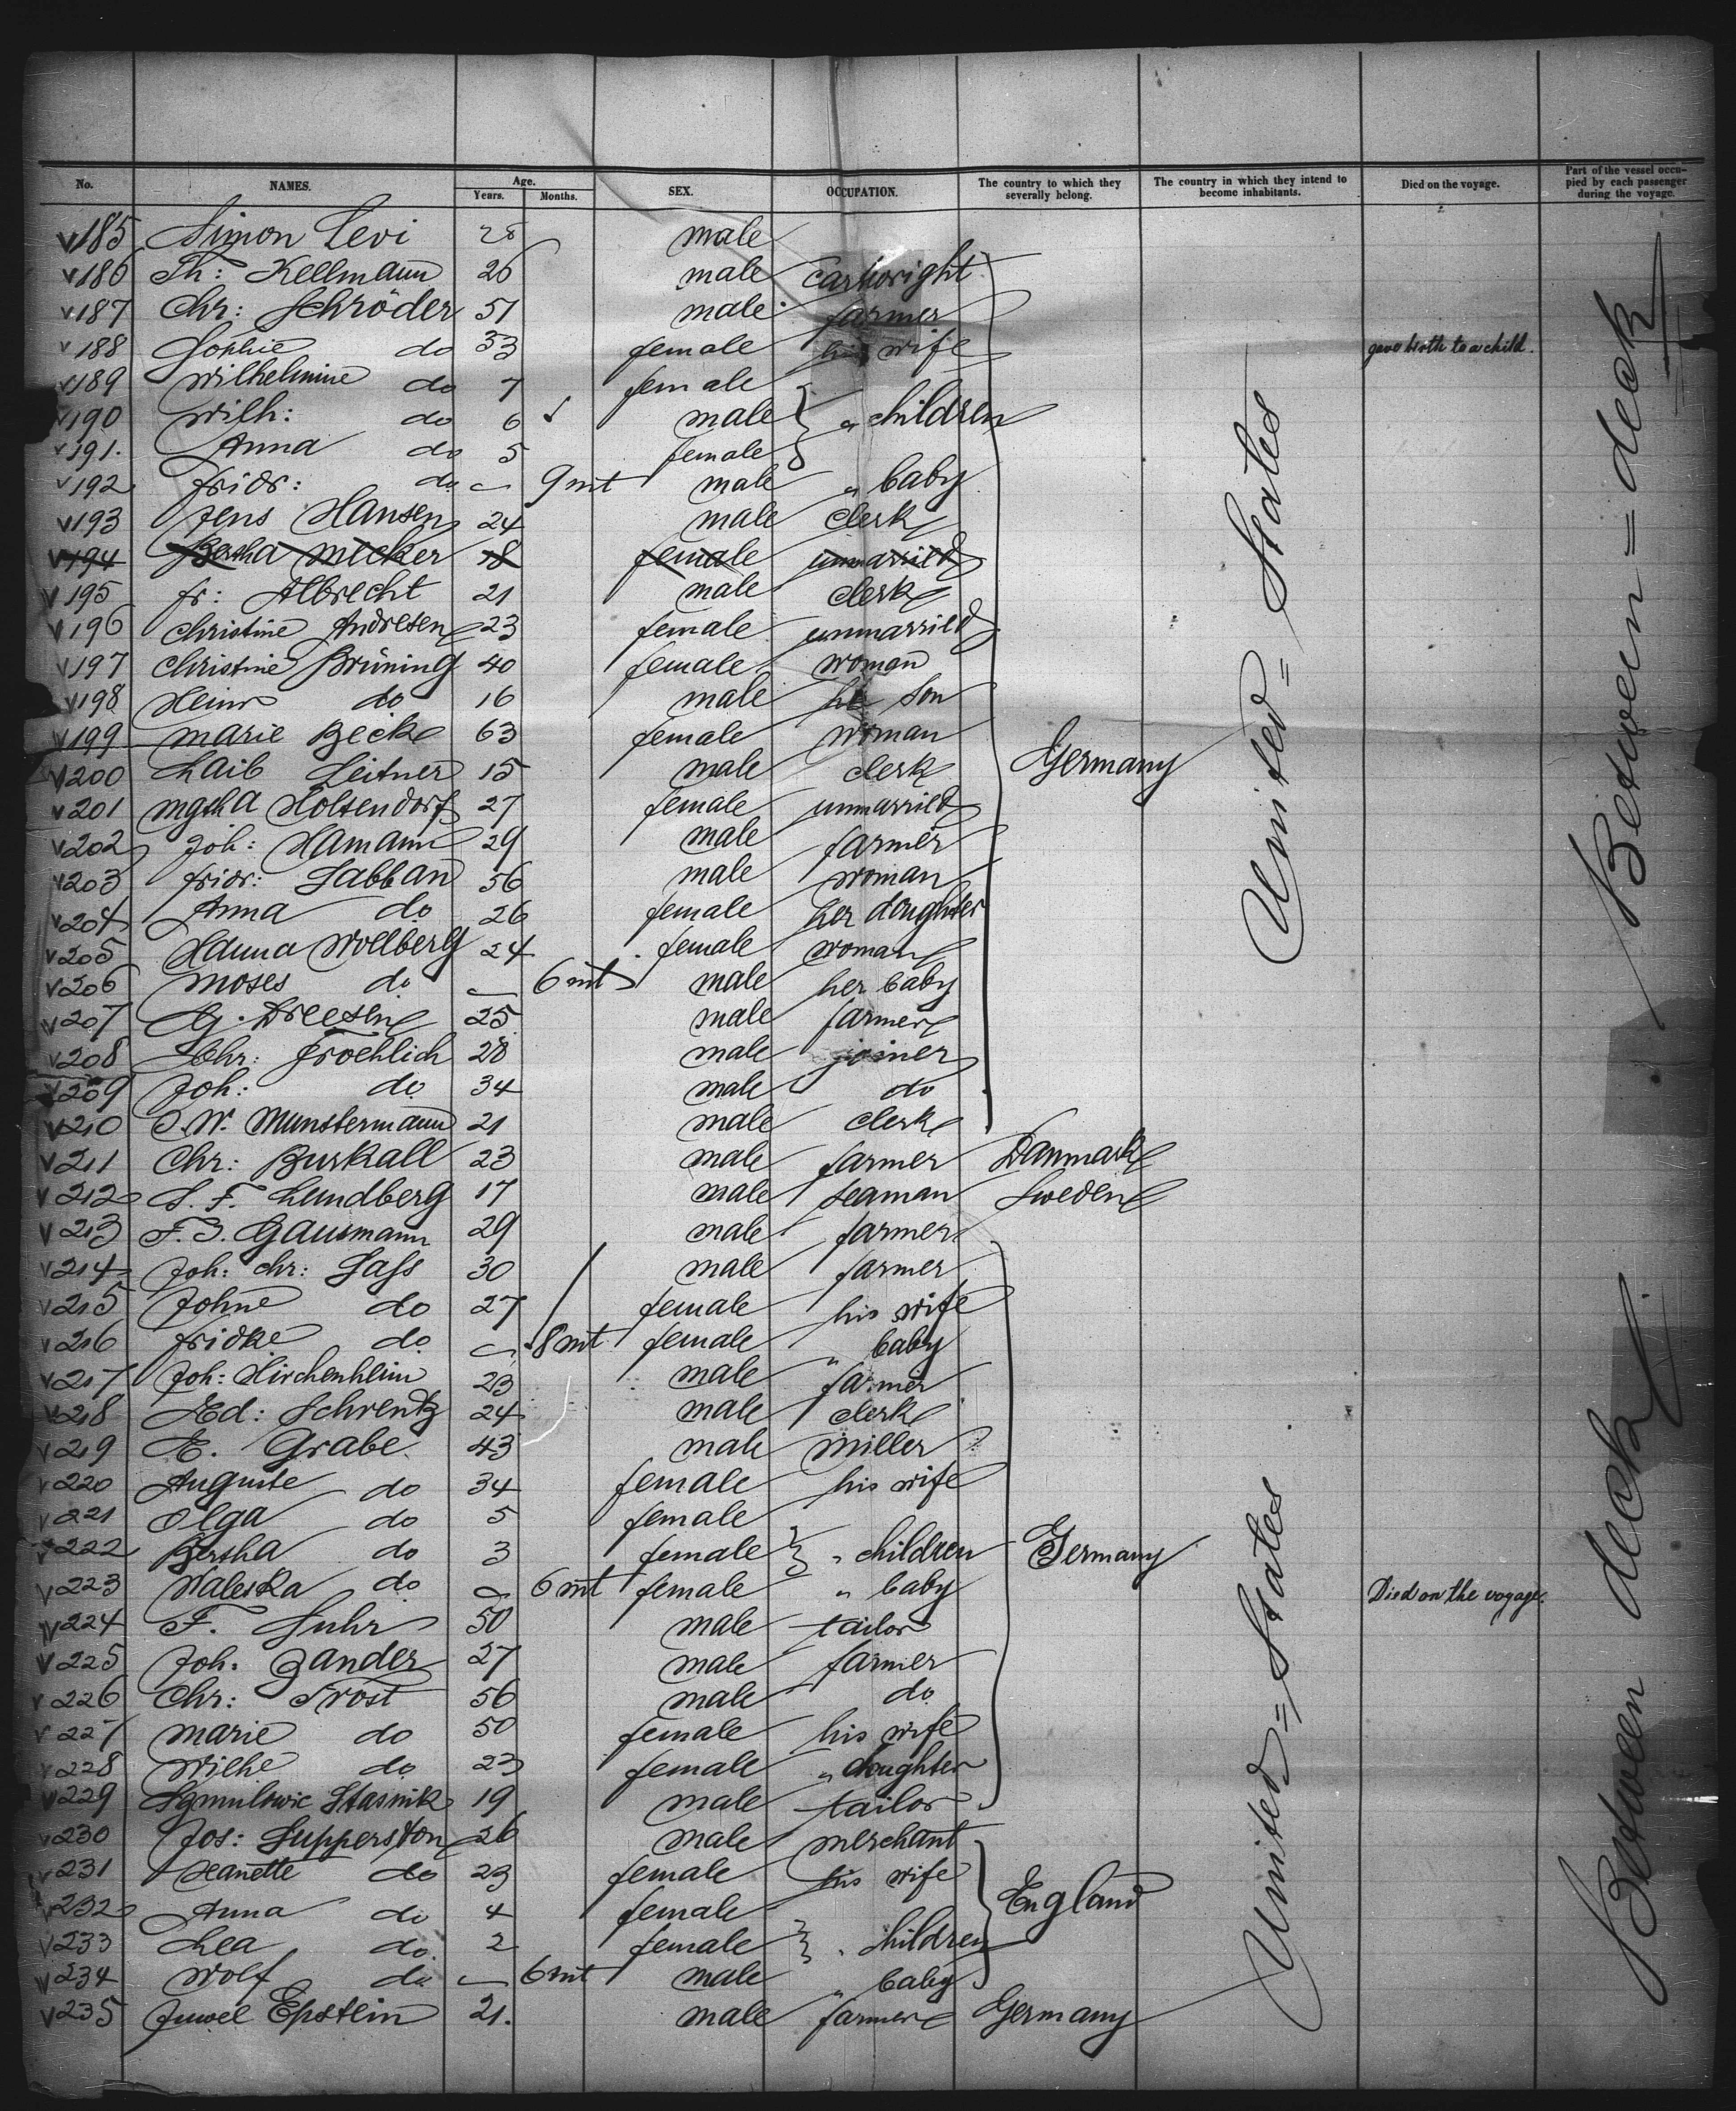 No. NAMES. Age. Years. Months. SEX. OCCUPATION. The country to which they severally belong. The country in which they intend to become inhabitants. Died on the voyage. Part of the vessel occupied by each passenger during the voyage.
185 Simon Levi male
186 Th: Kellmann 26 male Cartwright
187 Chr: Schröder 51 male farmer
188 Sophie do 33 female his wife gave birth to a child.
189 Wilhelmine do 7 female
190 Wilh: do 6 male " children
191. Anna do 5 female
192 Fridr: do — 9 mt male " baby
193 Jens Hansen 24 male clerk
194 Bertha 18 female unmarried
195 Fr: Albrecht 21 male clerk
196 Christine Andresen 23 female unmarried
197 Christine Brüning 40 female woman
198 Heinr do 16 male son
199 Marie Beck 63 female woman
200 Laib Leitner 15 male clerk Germany
201 Holtendorf 27 female unmarried
202 Joh: Hamann 29 male farmer
203 Fridr: Sabban 56 male woman
204 Anna do 26 female her doughter
205 Hanna Wollberg 24 female woman
206 Moses do — 6 mt male her baby
207 Dreesen 25 male farmer
208 Chr: Froehlich 28 male joiner
209 Joh: do 34 male do
210 Munstermann 21 male clerk
211 Chr: Burkall 23 male farmer Danmark
212 S. F. Lundberg 17 male seaman Sweden
213 Gausmann 29 male farmer
214 Joh: Chr: Sass 30 male farmer
215 Johne do 27 female his wife
216 Fridke do — 8 mt female " baby
217 Joh: Hirchenheim 23 male farmer
218 Ed: Schrentz 24 male clerk
219 E. Grabe 43 male miller
220 Auguste do 34 female his wife
221 Olga do 5 female
222 Bertha do 3 female " children Germany
223 Waleska do — 6 mt female " baby Died on the voyage.
224 F. Suhr 50 male tailor
225 Joh: Zander 27 male farmer
226 Chr: Frost 56 male do
227 Marie do 50 female his wife
228 Wilhe do 23 female " doughter
229 Stasnik 19 male tailor
230 Jos: Supperston 26 male merchant
231 Hanette do 23 female his wife England
232 Anna do 4 female
233 Lea do. 2 female " children
234 Wolf do — 6 mt male " baby
235 Epstein 21. male farmer Germany
United = States
United = States
Between = deck
Between deck